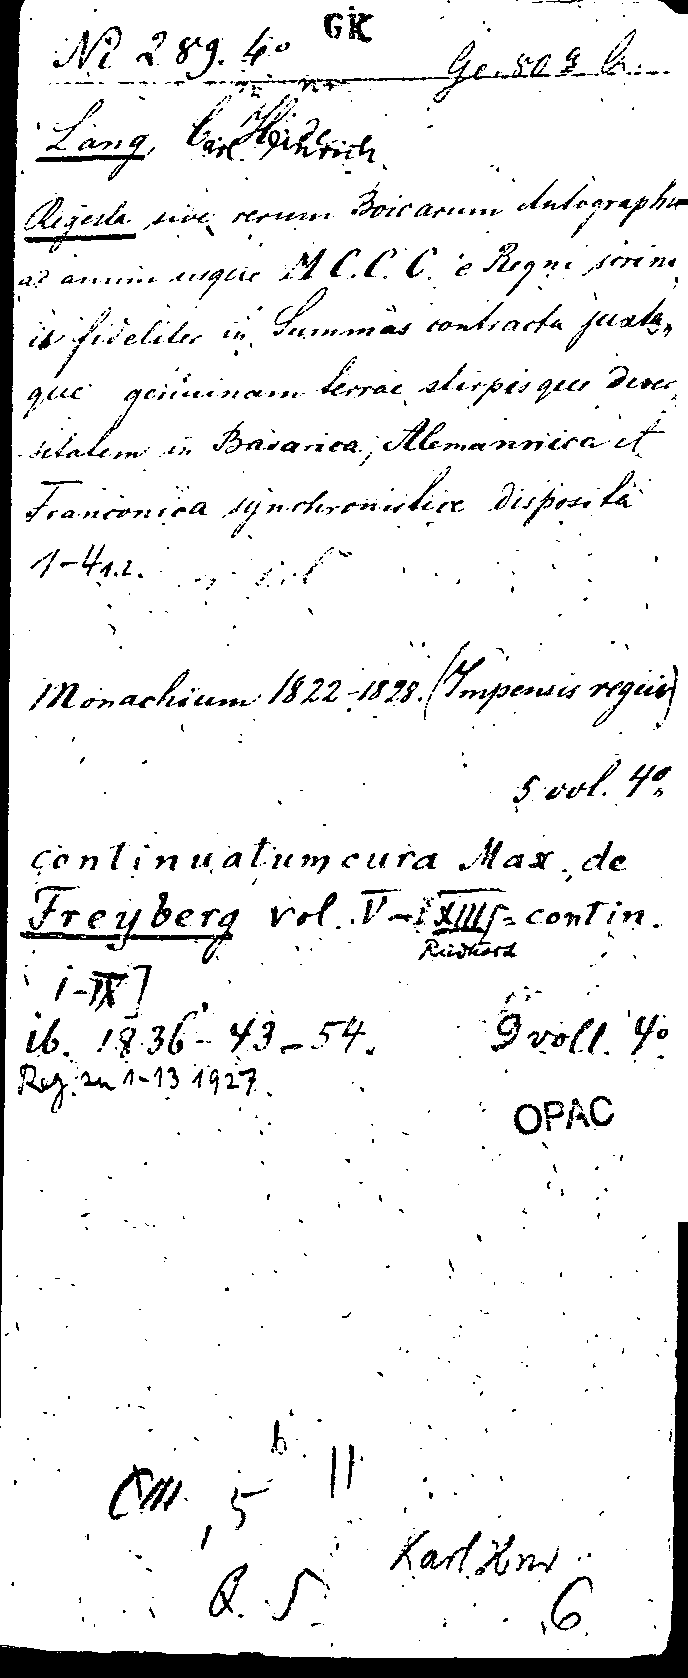 GK
Ni 289. 4o Ge. 503 b.
Lang, Carl Heinrich
Regesta sive rerum Boicarum Autographa
ad annum usque M C.C.C. e Regni scrini
is fideliter in Summas contracta juxta
que genuinam terrae stirpisque diver
sitatem in Bavarica, Alemannica et
Franconica synchronistice disposita
1-4 1.2.
Monachium 1822-1828. (Impensis regiis)
5 vol. 4o
continuatum cura Max. de
Freyberg vol. V-[XIII= contin.
Rudhard
I-IX]
ib. 1836-43-54. 9 voll. 4o
Reg. zu 1-13 1927.
OPAC
b
CM, 5 11
Karl Hnr
Q. 5 6